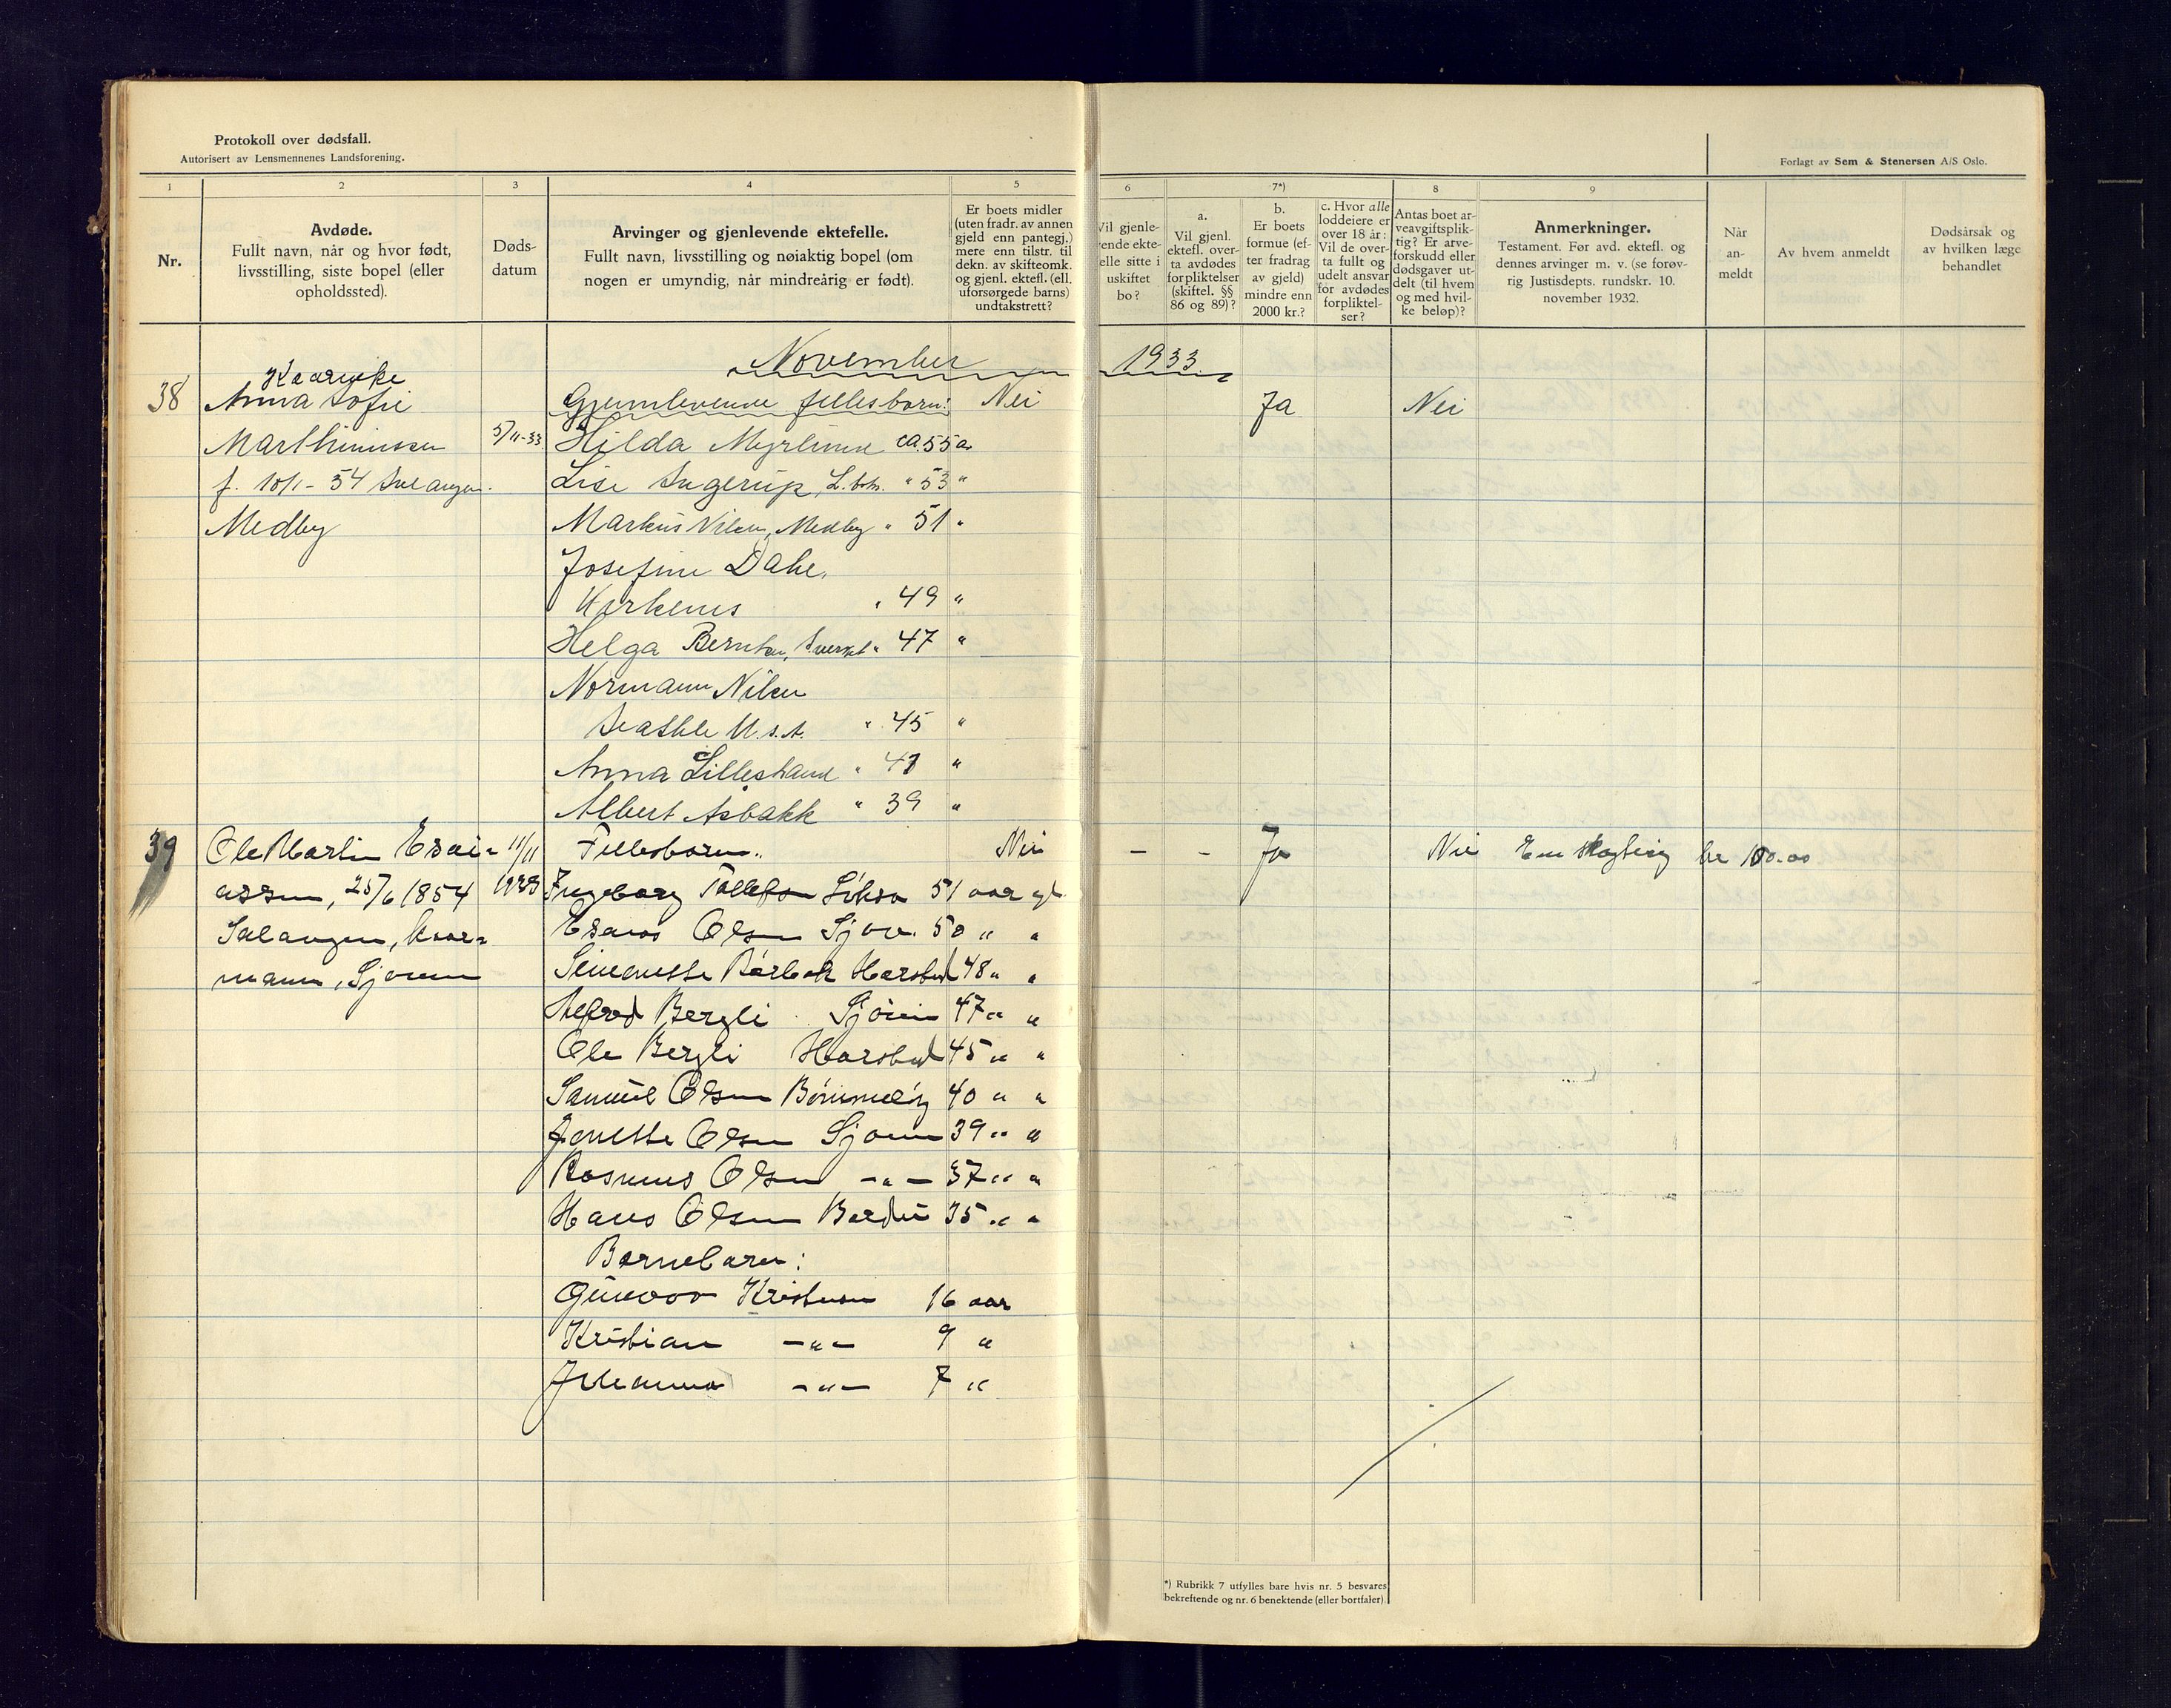 Protokoll over dødsfall.
Autorisert av Lensmennenes Landsforening.
Forlagt av Sem & Stenersen A/S Oslo.
1 2 3 4 5 6 7*) 8 9
Nr.
Avdøde.
Fullt navn, når og hvor født,
livsstilling, siste bopel (eller
opholdssted).
Døds-
datum
Arvinger og gjenlevende ektefelle.
Fullt navn, livsstilling og nøiaktig bopel (om
nogen er umyndig, når mindreårig er født).
Er boets midler
(uten fradr. av annen
gjeld enn pantegj.)
mere enn tilstr. til
dekn. av skifteomk.
og gjenl. ektefl. (ell.
uforsørgede barns)
undtakstrett?
Vil gjenle-
vende ekte-
felle sitte i
uskiftet
bo?
a.
Vil gjenl.
ektefl. over-
ta avdødes
forpliktelser
(skiftel. §§
86 og 89)?
b.
Er boets
formue (ef-
ter fradrag
av gjeld)
mindre enn
2000 kr.?
c. Hvor alle
loddeiere er
over 18 år:
Vil de over-
ta fullt og
udelt ansvar
for avdødes
forpliktel-
ser?
Antas boet ar-
veavgiftsplik-
tig? Er arve-
forskudd eller
dødsgaver ut-
delt (til hvem
og med hvil-
ke beløp)?
Anmerkninger.
Testament. Før avd. ektefl. og
dennes arvinger m. v. (se forøv-
rig Justisdepts. rundskr. 10.
november 1932.
Når
an-
meldt
Av hvem anmeldt
Dødsårsak og
av hvilken læge
behandlet
November 1933.
38 Anna Sofie Gjenlevende fellesbarn: Nei Ja Nei
Marthinussen 5/11-33 Hilda Myrlund ca. 55 a
f. 10/1-54 Salangen. Lise " 53 "
Medby Markus Nilsen, Medby " 51 "
Josefine Dahl,
Kirkenes " 49 "
Helga Berntsen, " 47 "
Normann Nilsen
Seattle U.S.A. " 45 "
Anna Lillestrand " "
Albert Asbakk " 39 "
39 Ole Martin Esai- 11/11 Fellesbarn. Nei - - Ja Nei kr 100.00
assen, 25/6 1854 1933 Ingeborg Tollefsen 51 aar gl
Salangen, Esaias Olsen Sjøv. 50 " "
mann, Sjøvegn Harstad 48 " "
Alfred Bergli Sjøvegn 47 " "
Ole Bergli Harstad 45 " "
Samuel Olsen 40 " "
Jenette Olsen Sjøvegn 39 " "
Rasmus Olsen -"- 37 " "
Hans Olsen Bardu 35 " "
Barnebarn:
Gunvor Kristensen 16 aar
Kristian -"- 9 "
-"- 7 "
*) Rubrikk 7 utfylles bare hvis nr. 5 besvares
bekreftende og nr. 6 benektende (eller bortfaler).